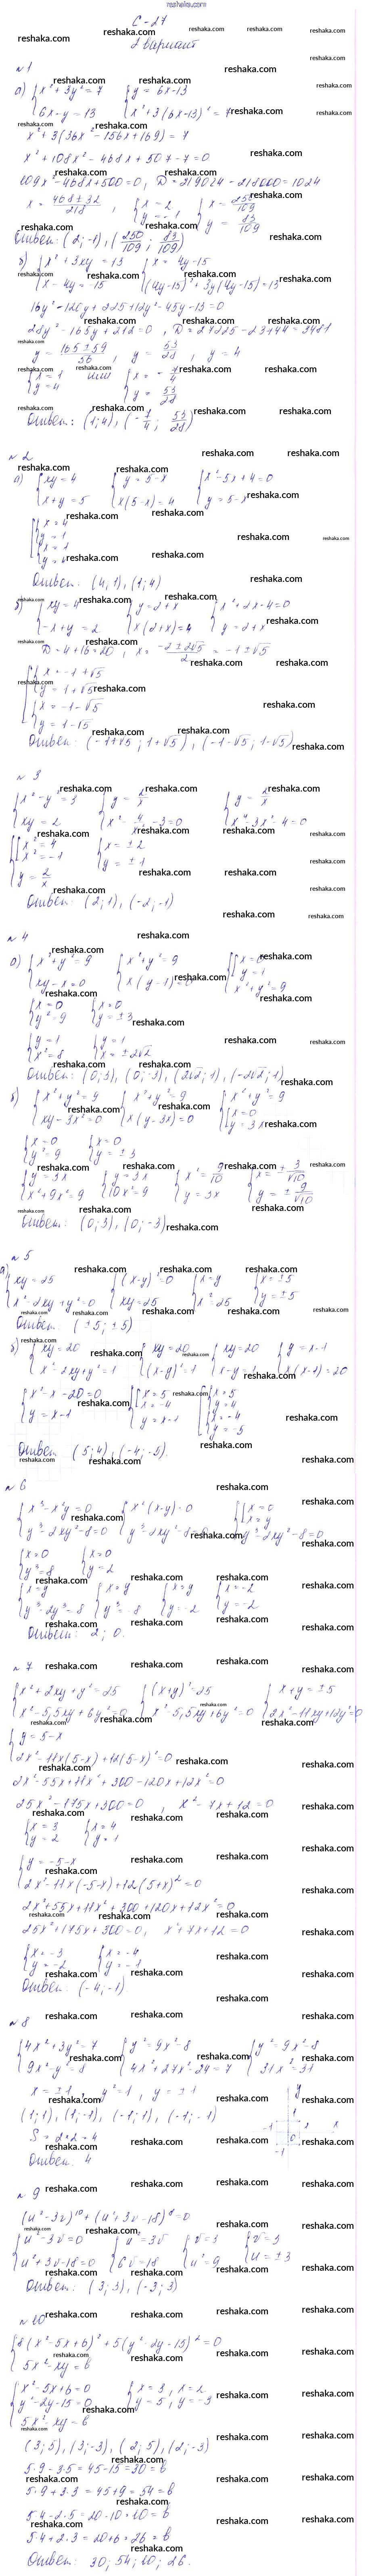 reshaka.com
С-27
2 вариант
№1
а) {x²+3y²=7 {y=6x-13
{6x-y=13 {x²+3(6x-13)²=7
x²+3(36x²-156x+169)=7
x²+108x²-468x+507-7=0
109x²-468x+500=0, D=219024-218000=1024
x=(468±32)/218, {x=2 {x=250/109
{y=-1 {y=83/109
Ответ: (2;-1), (250/109; 83/109)
б) {x²+3xy=13 {x=4y-15
{x-4y=-15 {(4y-15)²+3y(4y-15)=13
16y²-120y+225+12y²-45y-13=0
28y²-165y+212=0, D=27225-23744=3481
y=(165±59)/56, y=53/28, y=4
{x=1 или {x=-7/4
{y=4 {y=53/28
Ответ: (1;4), (-7/4; 53/28)
№2
а) {xy=4 {y=5-x {x²-5x+4=0
{x+y=5 {x(5-x)=4 {y=5-x
{x=4
{y=1
{x=1
{y=4
Ответ: (4;1), (1;4)
б) {xy=4 {y=2+x {x²+2x-4=0
{-x+y=2 {x(2+x)=4 {y=2+x
D=4+16=20, x=(-2±2√5)/2=-1±√5
{x=-1+√5
{y=1+√5
{x=-1-√5
{y=1-√5
Ответ: (-1+√5; 1+√5), (-1-√5; 1-√5)
№3
{x²-y²=3 {y=2/x {y=2/x
{xy=2 {x²-4/x²-3=0 {x⁴-3x²-4=0
{x²=4 {x=±2
{x²=-1 {y=±1
{y=2/x
Ответ: (2;1), (-2;-1)
№4
а) {x²+y²=9 {x²+y²=9 {x=0
{xy-x=0 {x(y-1)=0 {y=1
{x²+y²=9
{x=0 {x=0
{y²=9 {y=±3
{y=1 {y=1
{x²=8 {x=±2√2
Ответ: (0;3), (0;-3), (2√2;1), (-2√2;1)
б) {x²+y²=9 {x²+y²=9 {x²+y²=9
{xy-3x²=0 {x(y-3x)=0 {x=0
{y=3x
{x=0 {x=0
{y²=9 {y=±3
{y=3x {y=3x {x²=9/10 {x=±3/√10
{x²+9x²=9 {10x²=9 {y=3x {y=±9/√10
Ответ: (0;3), (0;-3)
№5
а) {xy=25 {(x-y)²=0 {x=y {x=±5
{x²-2xy+y²=0 {xy=25 {x²=25 {y=±5
Ответ: (±5; ±5)
б) {xy=20 {xy=20 {xy=20 {y=x-1
{x²-2xy+y²=1 {(x-y)²=1 {x-y=1 {x(x-1)=20
{x²-x-20=0 {x=5 {x=5
{y=x-1 {x=-4 {y=4
{y=x-1 {x=-4
{y=-5
Ответ: (5;4), (-4;-5).
№6
{x³-x²y=0 {x²(x-y)=0 {x=0
{y³-2xy²-8=0 {y³-2xy²-8=0 {x=y
{y³-2xy²-8=0
{x=0 {x=0
{y³=8 {y=2
{x=y {x=y {x=y {x=-2
{y³-2y³=8 {y³=-8 {y=-2 {y=-2
Ответ: 2; 0.
№7
{x²+2xy+y²=25 {(x+y)²=25 {x+y=±5
{x²-5,5xy+6y²=0 {x²-5,5xy+6y²=0 {2x²-11xy+12y²=0
{y=5-x
{2x²-11x(5-x)+12(5-x)²=0
2x²-55x+11x²+300-120x+12x²=0
25x²-175x+300=0, x²-7x+12=0
{x=3 {x=4
{y=2 {y=1
{y=-5-x
{2x²-11x(-5-x)+12(5+x)²=0
2x²+55x+11x²+300+120x+12x²=0
25x²+175x+300=0, x²+7x+12=0
{x=-3 {x=-4
{y=-2 {y=-1
Ответ: (-4;-1)
№8
{4x²+3y²=7 {y²=9x²-8 {y²=9x²-8
{9x²-y²=8 {4x²+27x²-24=7 {31x²=31
x=±1, y²=1, y=±1
(1;1), (1;-1), (-1;1), (-1;-1)
S=2×2=4
Ответ: 4
№9
(u²-3v)¹⁰+(u²+3v-18)⁸=0
{u²-3v=0 {u²=3v {v=3 {v=3
{u²+3v-18=0 {6v=18 {u²=9 {u=±3
Ответ: (3;3), (-3;3)
№10
{8(x²-5x+6)²+5(y²-2y-15)²=0
{5x²-xy=b
{x²-5x+6=0 {x=3, x=2
{y²-2y-15=0 {y=5, y=-3
{5x²-xy=b
(3;5), (3;-3), (2;5), (2;-3)
5·9-3·5=45-15=30=b
5·9+3·3=45+9=54=b
5·4-2·5=20-10=10=b
5·4+2·3=20+6=26=b
Ответ: 30; 54; 10; 26.